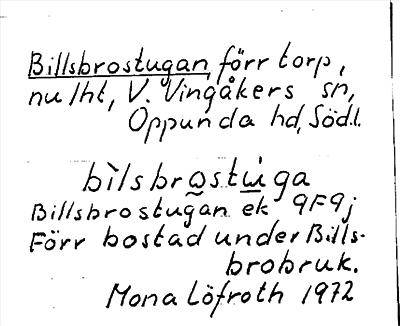 Billsbrostugan, förr torp,
nu lht, V. Vingåkers sn,
Oppunda hd, Södl.
bìlsbro̰stẁ̰ga
Billsbrostugan ek 9F9j
Förr bostad under Bills-
brobruk.
Mona Löfroth 1972